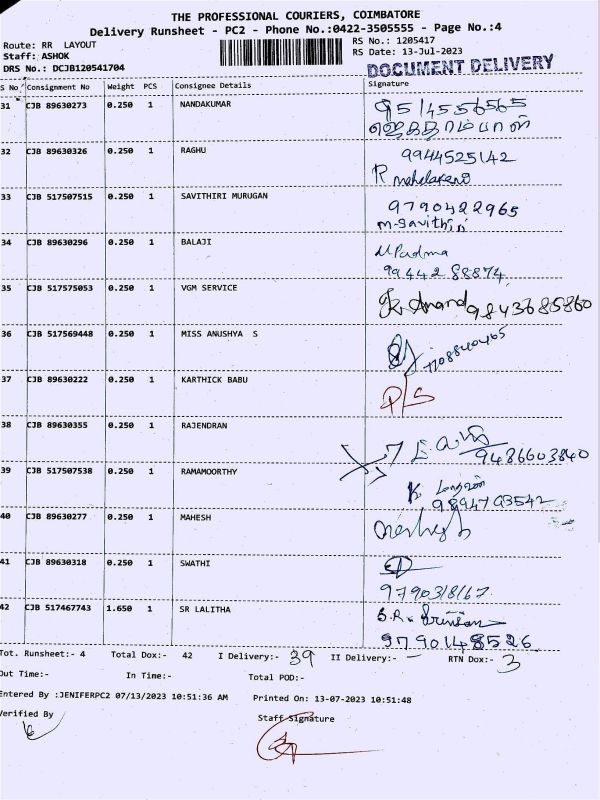 THE PROFESSIONAL COURIERS, COIMBATORE
Delivery Runsheet - PC2 - Phone No.:0422-3505555 - Page No.:4
Route: RR LAYOUT RS No.: 1205417
Staff: ASHOK RS Date: 13-Jul-2023
DRS No.: DCJB120541704 DOCUMENT DELIVERY
S No Consignment No Weight PCS Consignee Details Signature
31 CJB 89630273 0.250 1 NANDAKUMAR 9514556565
32 CJB 89630326 0.250 1 RAGHU 9944525142
R
33 CJB 517507515 0.250 1 SAVITHIRI MURUGAN 9790422965
M-Savithiri
34 CJB 89630296 0.250 1 BALAJI M Padma
9944288874
35 CJB 517575053 0.250 1 VGM SERVICE K. Anand 9843685860
36 CJB 517569448 0.250 1 MISS ANUSHYA S 7708840465
37 CJB 89630222 0.250 1 KARTHICK BABU P/S
38 CJB 89630355 0.250 1 RAJENDRAN 9486603840
39 CJB 517507538 0.250 1 RAMAMOORTHY K
9894793542
40 CJB 89630277 0.250 1 MAHESH
41 CJB 89630318 0.250 1 SWATHI
9790318167
42 CJB 517467743 1.650 1 SR LALITHA S.R.
9790148526
Tot. Runsheet:- 4 Total Dox:- 42 I Delivery:- 39 II Delivery:- — RTN Dox:- 3
Out Time:- In Time:- Total POD:-
Entered By :JENIFERPC2 07/13/2023 10:51:36 AM Printed On: 13-07-2023 10:51:48
Verified By Staff Signature